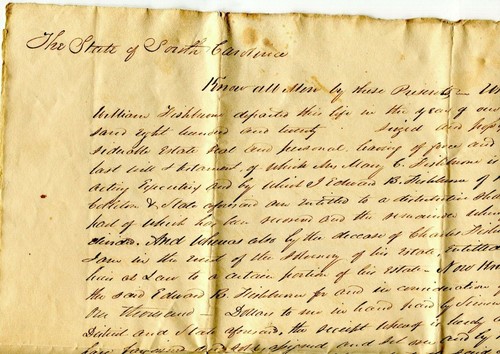 The State of South Carolina
Know all Men by these Presents Wh
William Fishburne departed this life in the year of our
sand eight hundred and twenty Siezed and
siderable Estate real and personal, leaving of force and
last will & testament of which Mrs Mary C. Fishburne is
acting Executrix and by which I Edward B. Fishburne of
& State aforesaid am Entitled to a distributive Sha
part of which has been received and the remainder
divided. And whereas also by the decease of Charles Fish
I am in the event of the of his Estate, Entitled
heir at Law to a certain portion of his Estate - Now
the said Edward B. Fishburne for and in consideration
Dollars to me in hand paid by
District and State aforesaid, the receipt whereof is hereby
and set over and by